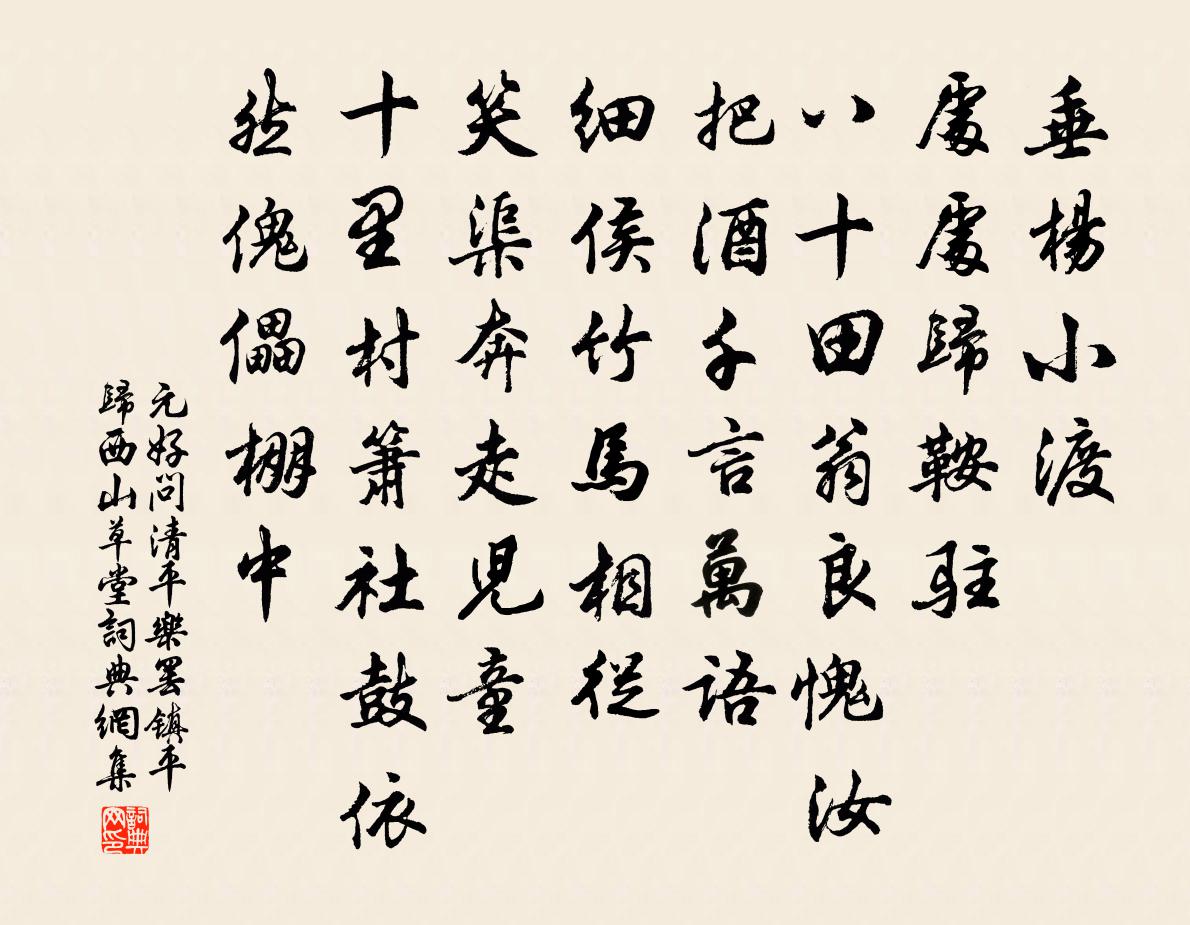 垂楊小渡
處處歸鞍駐
八十田翁良愧汝
把酒千言萬語
細侯竹馬相從
笑渠奔走兒童
十里村簫社鼓依
然傀儡棚中
元好問清平樂罷鎮平
歸西山草堂詞典網集
詞典
网印